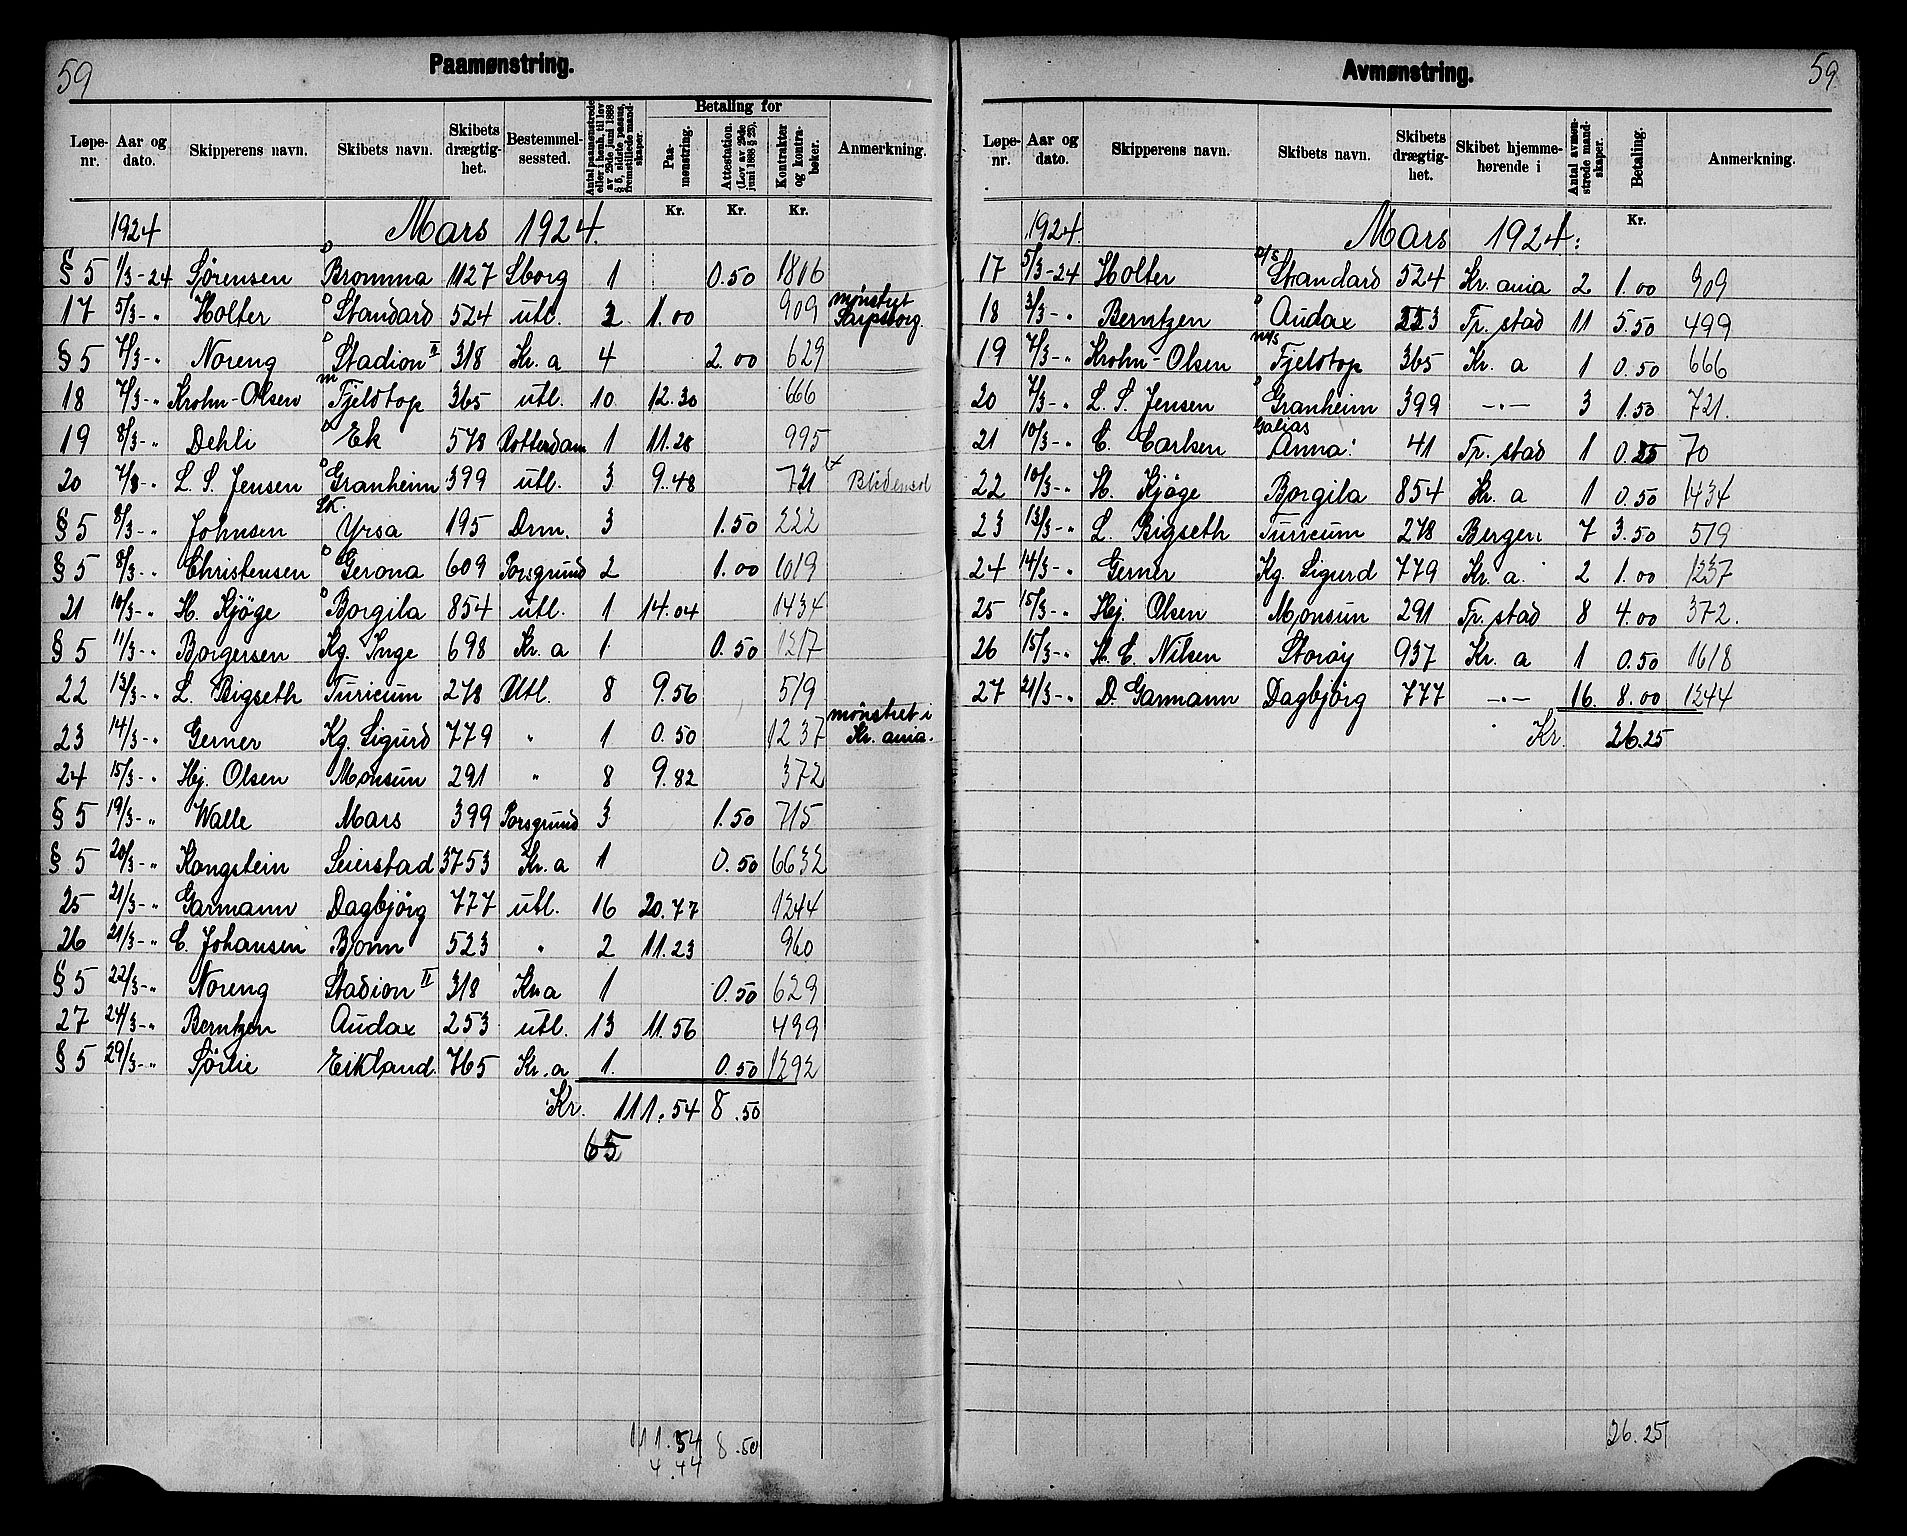 59
Paamønstring.
Løpe-nr. Aar og dato. Skipperens navn. Skibets navn. Skibets drægtig-het. Bestemmel-sessted. Antal paamønstrede eller i henh. til lov av 26de juni 1888 § 5, sidste passus, fremstillede mand-skaper. Betaling for Paa-mønstring. Attestation. (Lov av 26de juni 1888 § 23). Kontrakter og kontra-bøker. Anmerkning.
Kr. Kr. Kr.
1924 Mars 1924.
§ 5 1/3-24 Sørensen D Bromma 1127 Sborg 1 0.50 1806
17 5/3-" Holter D Standard 524 utl. 2 1.00 909 mønstret Sarpsborg.
§ 5 7/3-" Noreng D Stadion II 318 Kr. a 4 2.00 629
18 7/3-" Krohn-Olsen m Fjeldtop 365 utl. 10 12.30 666
19 8/3-" Dehli D Ek 578 Rotterdam 1 11.28 995
20 7/3-" L. S. Jensen D Granheim 399 utl. 3 9.48 721
§ 5 8/3-" Johnsen Sk. Yrsa 195 Drm. 3 1.50 222
§ 5 8/3-" Christensen D Gerona 609 Porsgrund 2 1.00 1019
21 10/3-" H. Kjöge D Borgila 854 utl. 1 14.04 1434
§ 5 11/3-" Borgersen Kg. Inge 698 Kr. a 1 0.50 1217
22 13/3-" L. Bigseth Turicum 278 Utl. 8 9.56 519
23 14/3-" Gerner Kg. Sigurd 779 " 1 0.50 1237 mønstret i Kr. ania.
24 15/3-" Hj. Olsen Monsun 291 " 8 9.82 372
§ 5 19/3-" Walle Mars 399 Porsgrund 3 1.50 715
§ 5 20/3-" Kongstein Seierstad 3753 Kr. a 1 0.50 6632
25 21/3-" Garmann Dagbjörg 777 utl. 16 20.77 1244
26 21/3-" C. Johansen Bjonn 523 " 2 11.23 960
§ 5 22/3-" Noreng Stadion II 318 Kr. a 1 0.50 629
27 24/3-" Berntzen Audax 253 utl. 13 11.56 499
§ 5 29/3-" Sörlie Eikland 765 Kr. a 1. 0.50 1292
Kr. 111.54 8.50
65
111.54 8.50
4.44
59.
Avmønstring.
Løpe-nr. Aar og dato. Skipperens navn. Skibets navn. Skibets drægtig-het. Skibet hjemme-hørende i Antal avmøn-strede mand-skaper. Betaling. Anmerkning.
Kr.
1924. Mars 1924.
17 5/3-24 Holter D/S Standard 524 Kr. ania 2 1.00 909
18 3/3-" Berntzen D Audax 253 Fr. stad 11 5.50 499
19 7/3-" Krohn-Olsen m/s Fjeldtop 365 Kr. a 1 0.50 666
20 7/3-" L. S. Jensen D Granheim 399 -"- 3 1.50 721.
21 10/3-" C. Carlsen Galias Anna 41 Fr. stad 1 0.25 70
22 10/3-" H. Kjöge Borgila 854 Kr. a 1 0.50 1434
23 13/3-" L. Bigseth Turicum 278 Bergen 7 3.50 519
24 14/3-" Gerner Kg. Sigurd 779 Kr. a. 2 1.00 1237
25 15/3-" Hj. Olsen Monsun 291 Fr. stad 8 4.00 372.
26 15/3-" H. C. Nilsen Storøy 937 Kr. a 1 0.50 1618
27 21/3-" D. Garmann Dagbjörg 777 -"- 16. 8.00 1244
Kr. 26.25
26.25